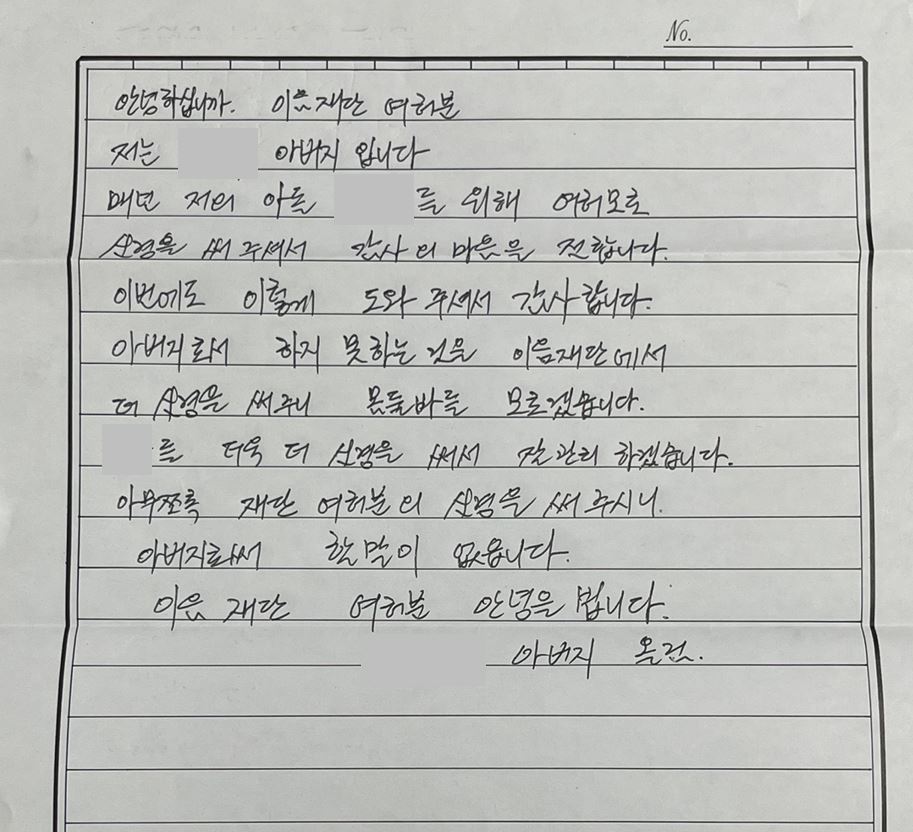 No.
안녕하십니까. 이음재단 여러분
저는 아버지 입니다
매년 저의 아들 를 위해 여러모로
신경을 써 주셔서 감사의 마음을 전합니다.
이번에도 이렇게 도와 주셔서 감사합니다.
아버지로서 하지 못하는 것을 이음재단에서
더 신경을 써주니 몸둘바를 모르겠습니다.
를 더욱 더 신경을 써서 잘관리 하겠습니다.
아무쪼록 재단 여러분의 신경을 써 주시니.
아버지로써 할말이 없읍니다.
이음 재단 여러분 안녕을 빕니다.
아버지 올림.